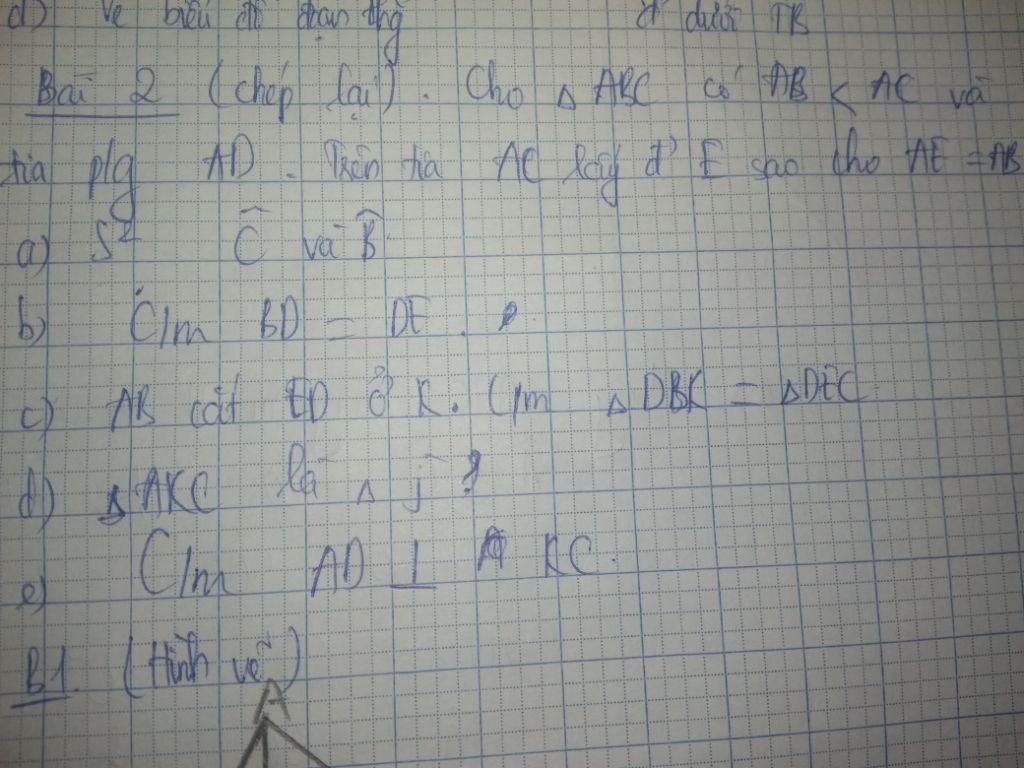 d) Vẽ biểu đồ đoạn thg đ dưới TB
Bài 2 (chép lại). Cho △ ABC có AB < AC và
tia p/g AD. Trên tia AC lấy đ' E sao cho AE = AB
a) S² Ĉ và B̂
b) C/m BD = DE.
c) AB cắt ED ở K. C/m △ DBK = △DEC
d) △ AKC là △ j ?
e) C/m AD ⊥ KC.
B1. (Hình vẽ)
A